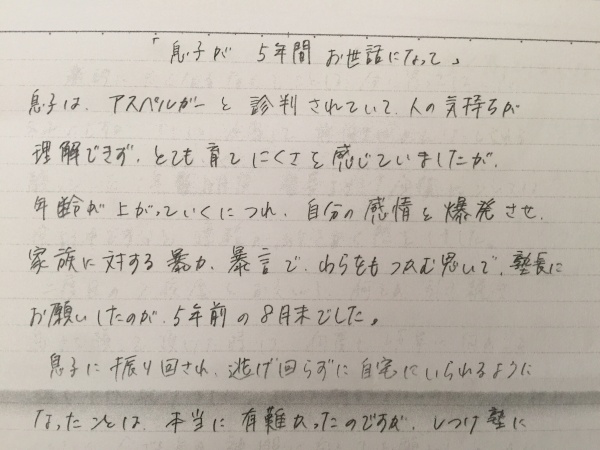 「息子が 5年間 お世話になって」
息子は、アスペルガーと診判されていて、人の気持ちが
理解できず、とても育てにくさを感じていましたが、
年齢が上がっていくにつれ、自分の感情を爆発させ、
家族に対する暴力、暴言で、わらをもつかむ思いで、塾長に
お願いしたのが、5年前の8月末でした。
息子に振り回され、逃げ回らずに自宅にいられるように
なったことは、本当に有難かったのですが、しつけ塾に